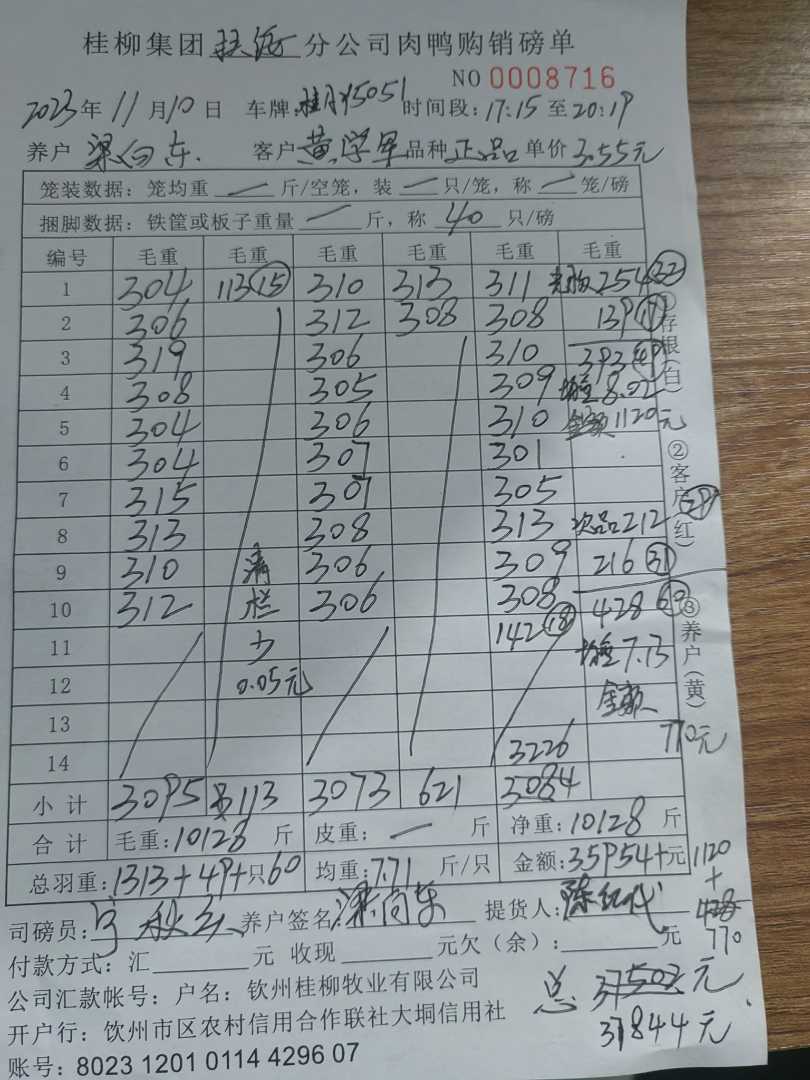 桂柳集团扶绥分公司肉鸭购销磅单
NO 0008716
2023年11月10日 车牌:桂 15051 时间段:17:15至20:19
养户 梁向东 客户 黄学军 品种 正品 单价 3.55元
笼装数据:笼均重 — 斤/空笼,装 — 只/笼,称 — 笼/磅
捆脚数据:铁筐或板子重量 — 斤,称 40 只/磅
编号 毛重 毛重 毛重 毛重 毛重 毛重
1 304 113(15) 310 313 311 254(32)
2 306 312 308 308 139(17)
3 319 306 310 393(49)
4 308 305 309 均重8.02
5 304 306 310 金额1120元
6 304 307 301
7 315 307 305
8 313 308 313 次品212(29)
9 310 满 306 309 216(31)
10 312 栏 306 308 428(60)
11 少 142(18) 均重7.13
12 0.05元 金额
13 770元
14 3226
小计 3095 113 3073 621 3084
合计 毛重:10128斤 皮重:— 斤 净重:10128斤
总羽重:1313+49+只60 均重:7.71斤/只 金额:35954+元 1120
+
428
770
司磅员: 养户签名:梁向东 提货人:陈红代
付款方式:汇 元 收现 元欠(余): 元
公司汇款帐号:户名:钦州桂柳牧业有限公司
开户行:饮州市区农村信用合作联社大垌信用社
账号:8023 1201 0114 4296 07
总 37502元
37844元
①存根(白)
②客户(红)
③养户(黄)